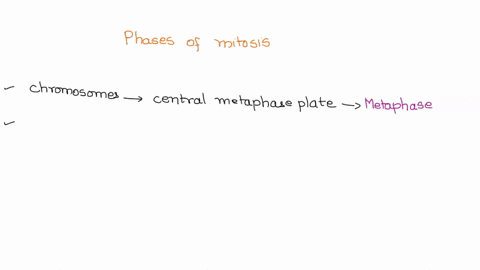 Phases of mitosis
chromosomes → central metaphase plate → Metaphase